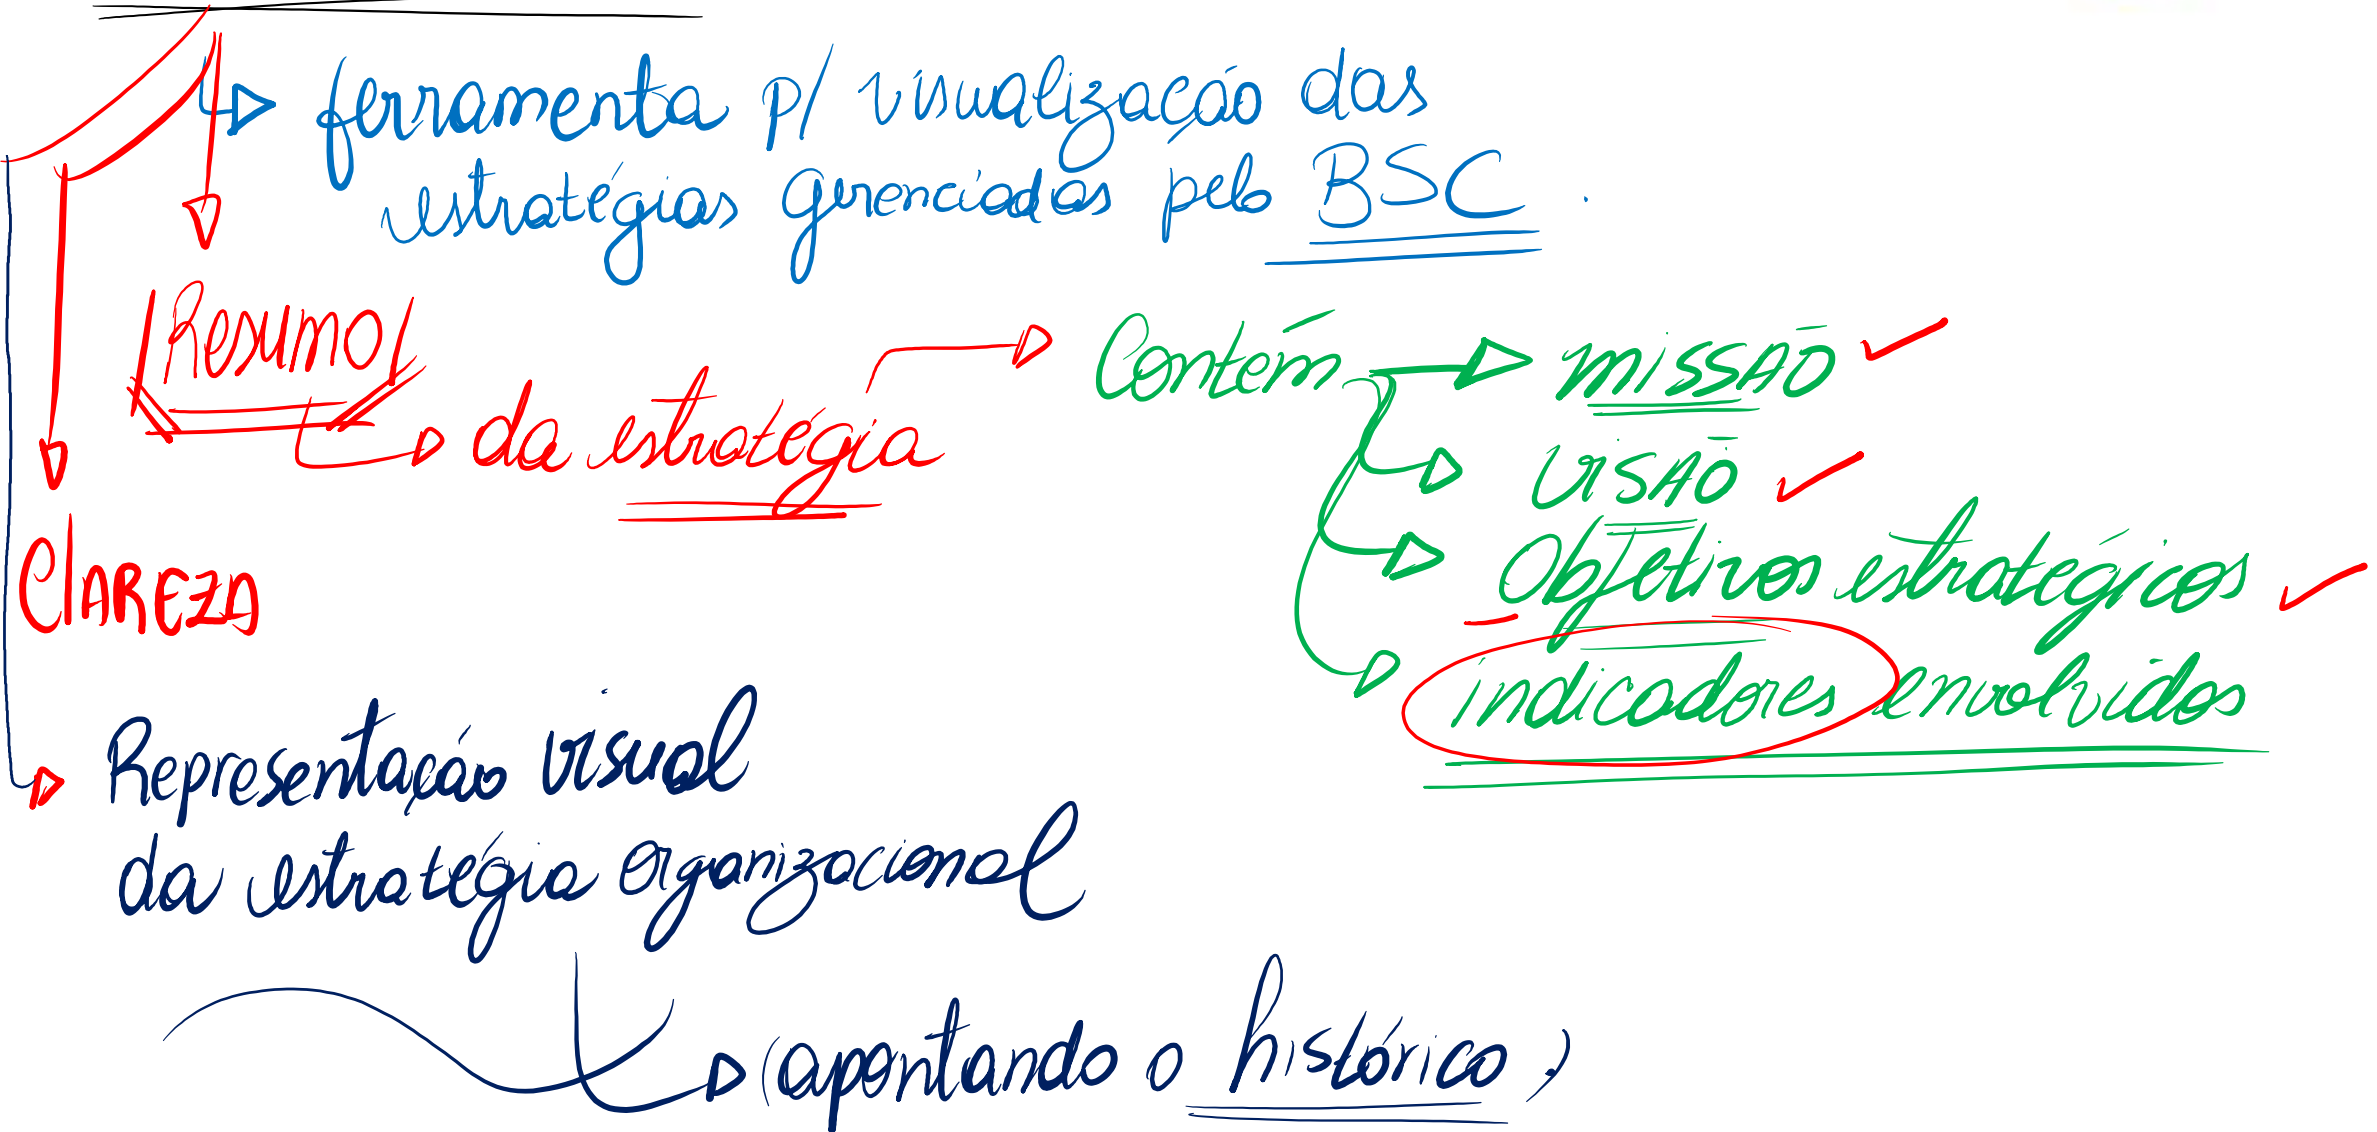 ferramenta p/ visualização das
estratégias gerenciadas pelo BSC.
Resumo
da estratégia
Contém
MISSÃO
VISÃO
Objetivos estratégicos
indicadores envolvidos
CLAREZA
Representação visual
da estratégia organizacional
(apontando o histórico)